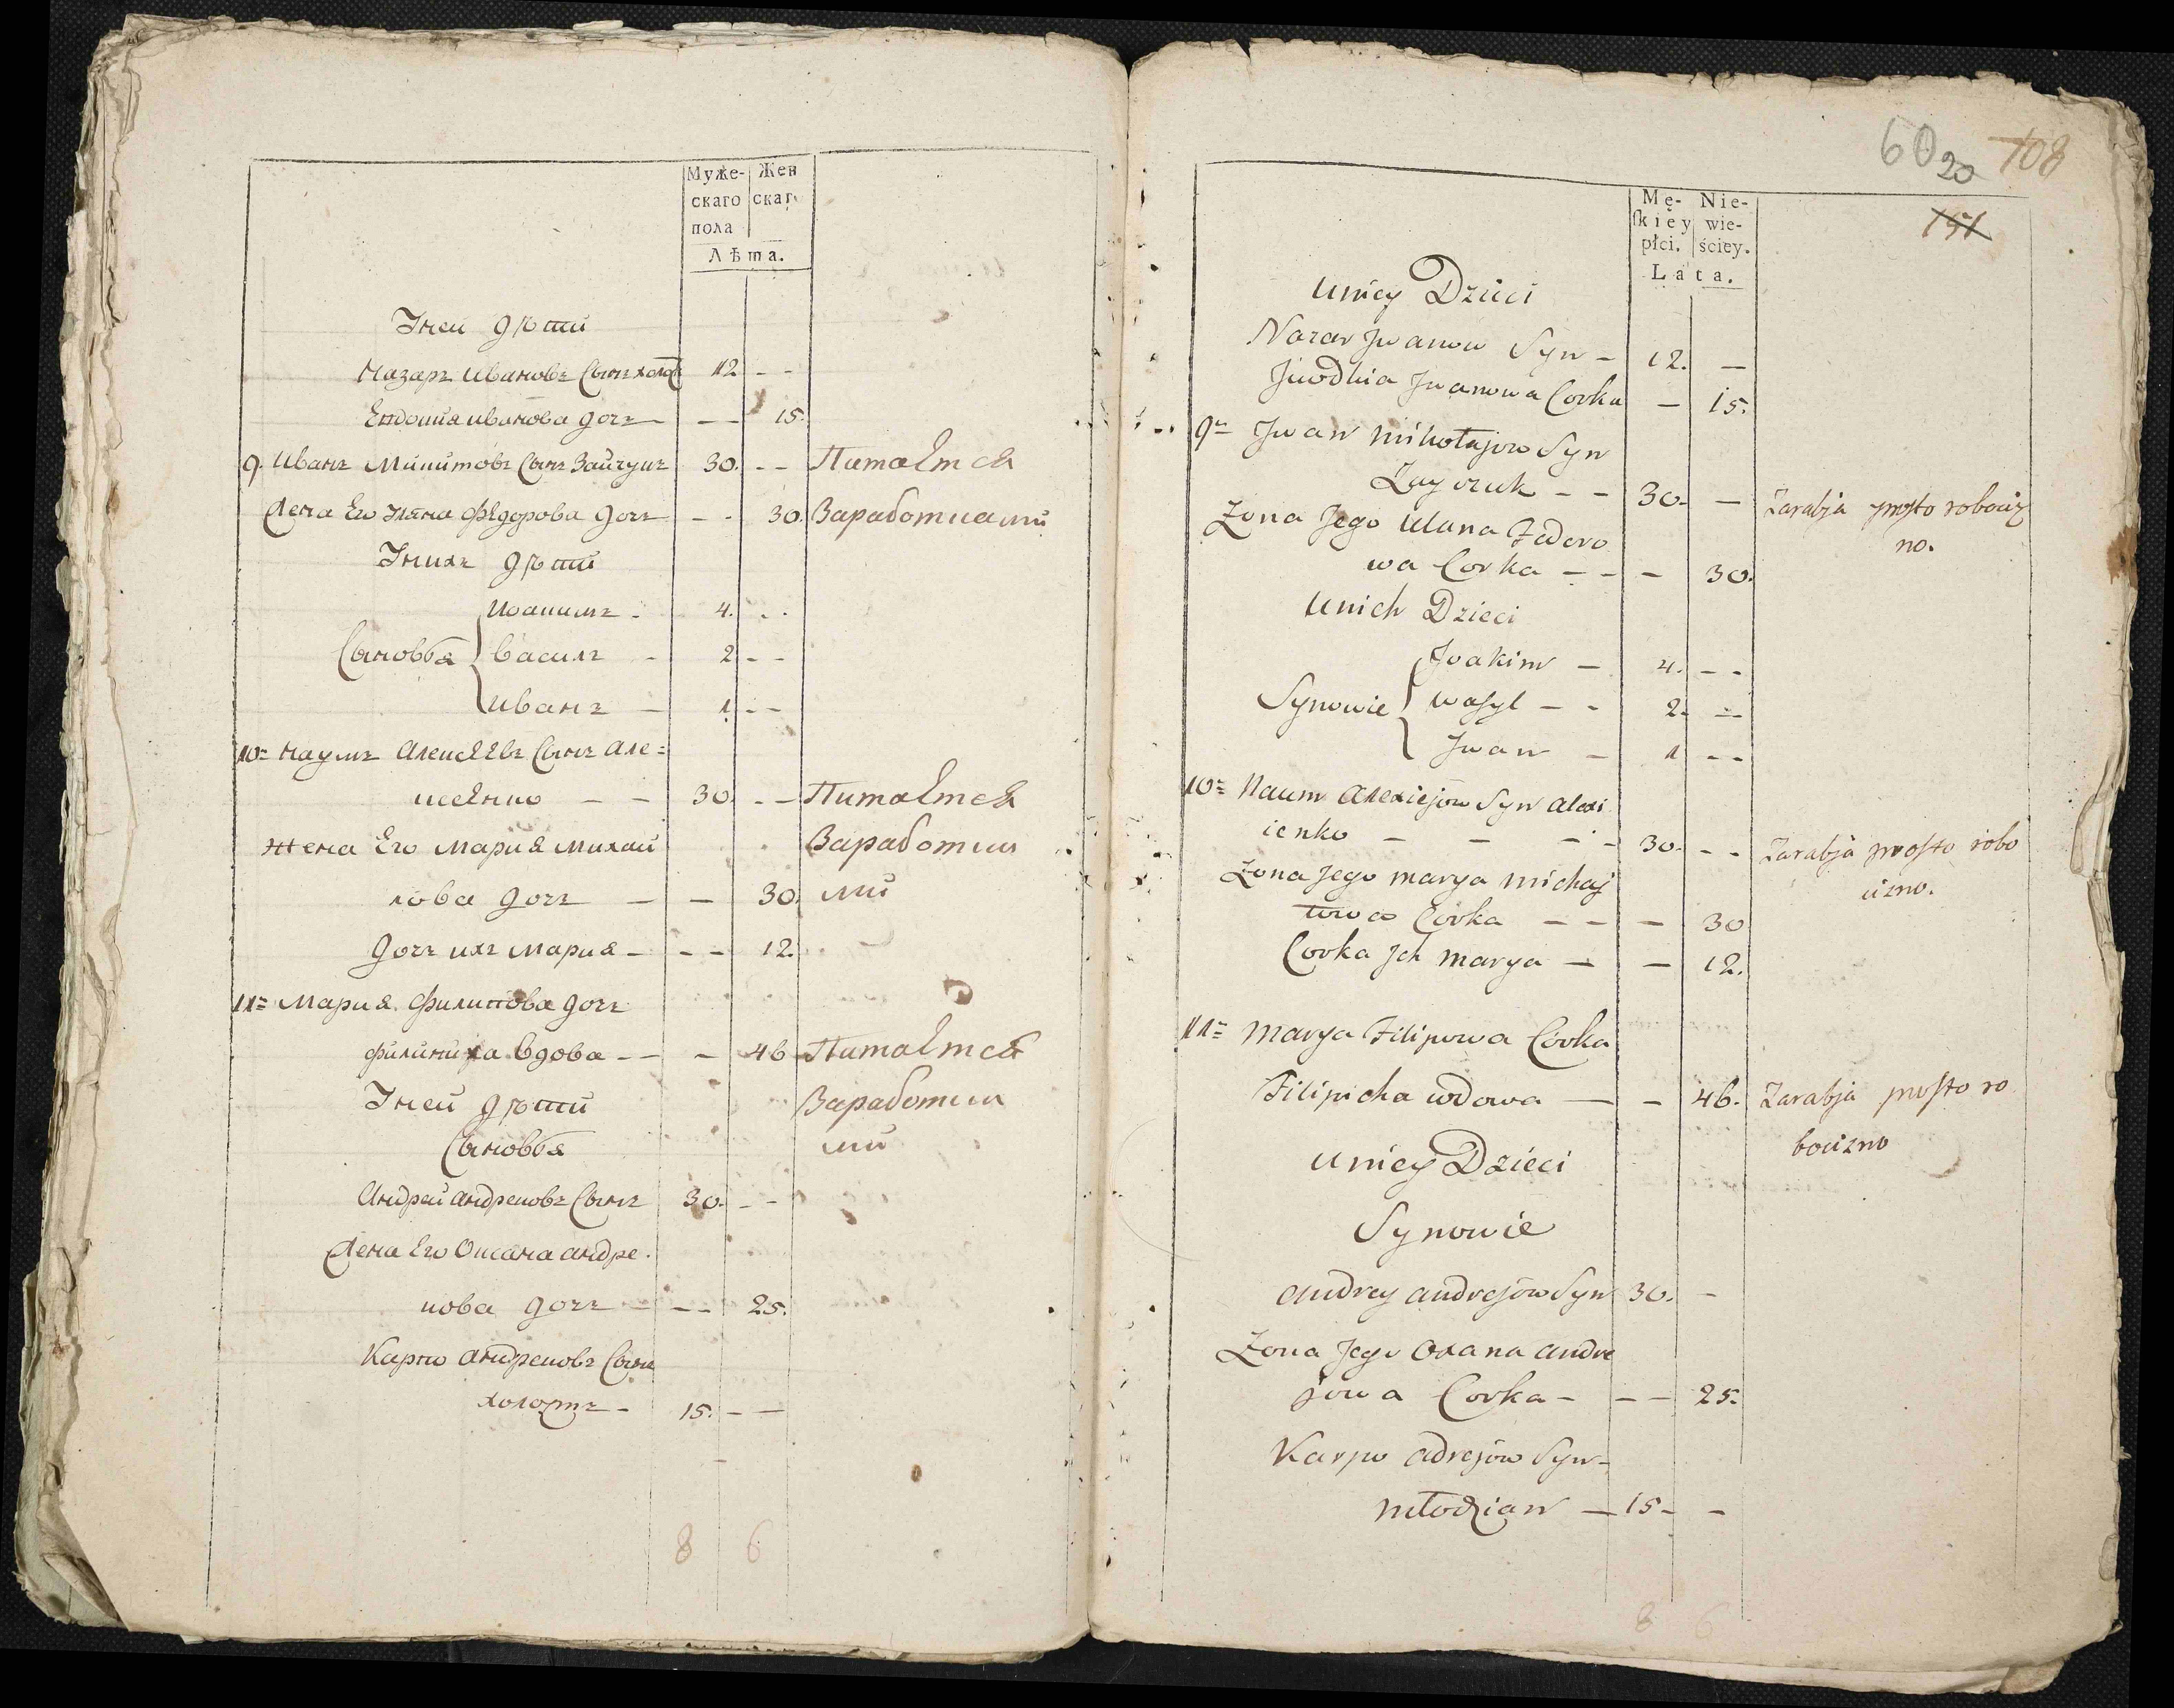 Муже- Жен
скаго скаг
пола
Лѣта.
Унеи дѣти
Назаръ Ивановъ Сынъ холос 12 - -
Евдокия иванова дочъ — 15.
9. Иванъ Микитовъ Сынъ Зайчукъ 30. - - Питается
Жена Его Уляна Федорова дочъ - - 30. Заработками
Унихъ дѣти
Иоакимъ - 4. - -
Сыновья Василь - 2 - -
Иванъ — 1 - -
10= Наумъ Алексеевъ Сынъ Але=
ксеенко — — 30. - - Питается
жена Его Мария Михай Заработка
лова дочъ — — 30. ми
Дочъ ихъ Мария — - - 12.
11= Мария Филипова дочъ
филипиха вдова - — - 46 Питается
Уней дѣти Заработка
Сыновья ми
Андрей андреховъ Сынъ 30. - -
Жена Его Оксана андре
кова дочъ — - - 25.
Карпо андреховъ Сынъ
холостъ - 15. - —
8 6
60 20 108
151
Mę- Nie-
ſkiey wie-
płci. ściey.
Lata.
Uniey Dzieci
Nazar Jwanow Syn - 12. —
Jiwdkia Jwanowa Corka — 15.
9= Jwan Mikołajow Syn
Zayczuk - - 30. — Zarabja prosto robociz
no.
Zona Jego Ulana Fedoro
wa Corka - - - 30.
Unich Dzieci
Joakim — 4. - -
Synowie Wasyl - - 2. - -
Jwan — 1 - -
10= Naum Alexiejow Syn Alexi
ienko — — - - 30. - - Zarabja prosto robo
cizno.
Zona Jego Marya Michaj
łowa Corka - - — 30
Corka Jch Marya — — 12.
11= Marya Filipowa Corka
Filipicha wdowa — - 46. Zarabja prosto ro
bocizno
Uniey Dzieci
Synowie
Andrey Andrejow Syn 30. -
Zona Jego Oxana Andre
jowa Corka - - — 25.
Karpo Adrejow Syn -
Młodzian — 15 - -
8 6